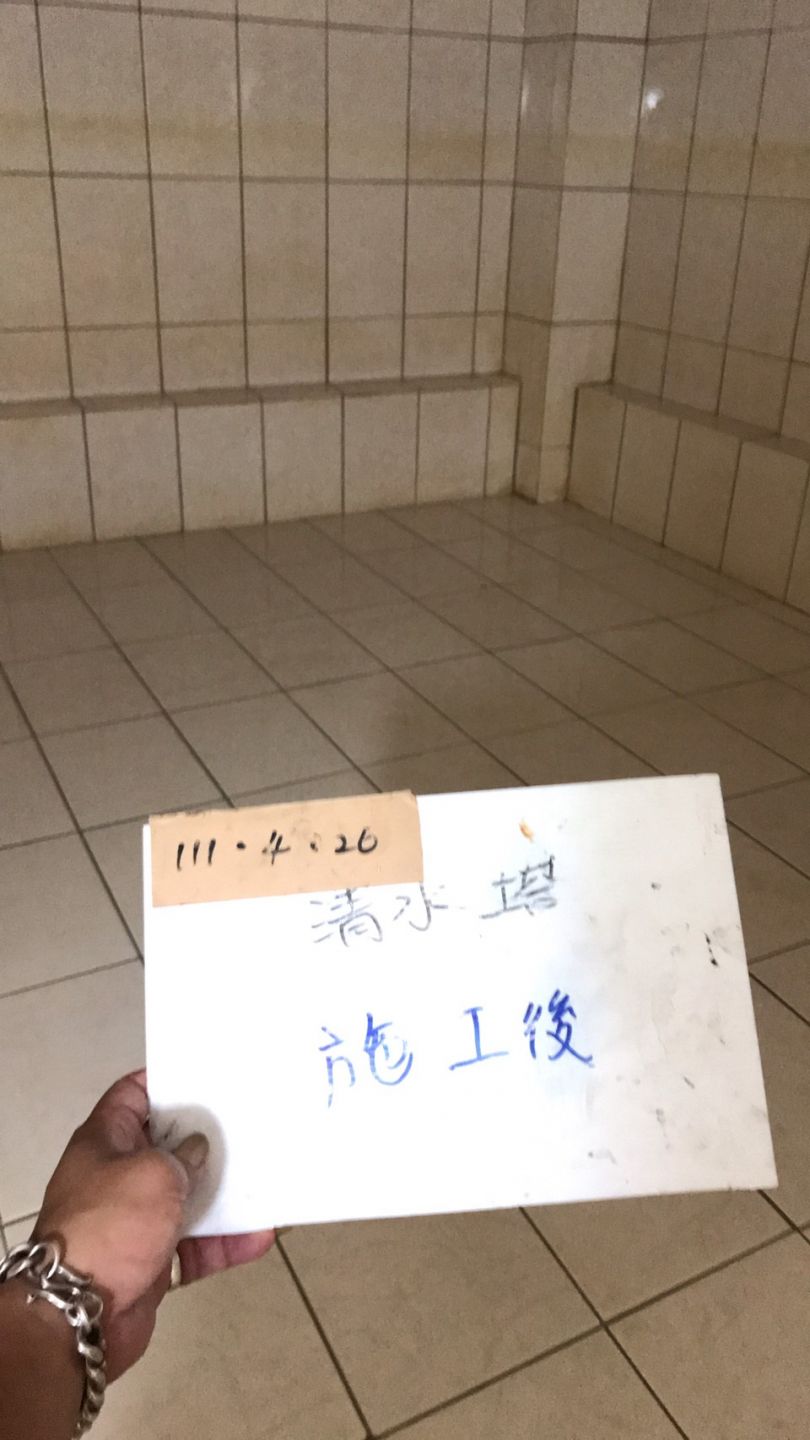 111.4.26
清水塔
施工後